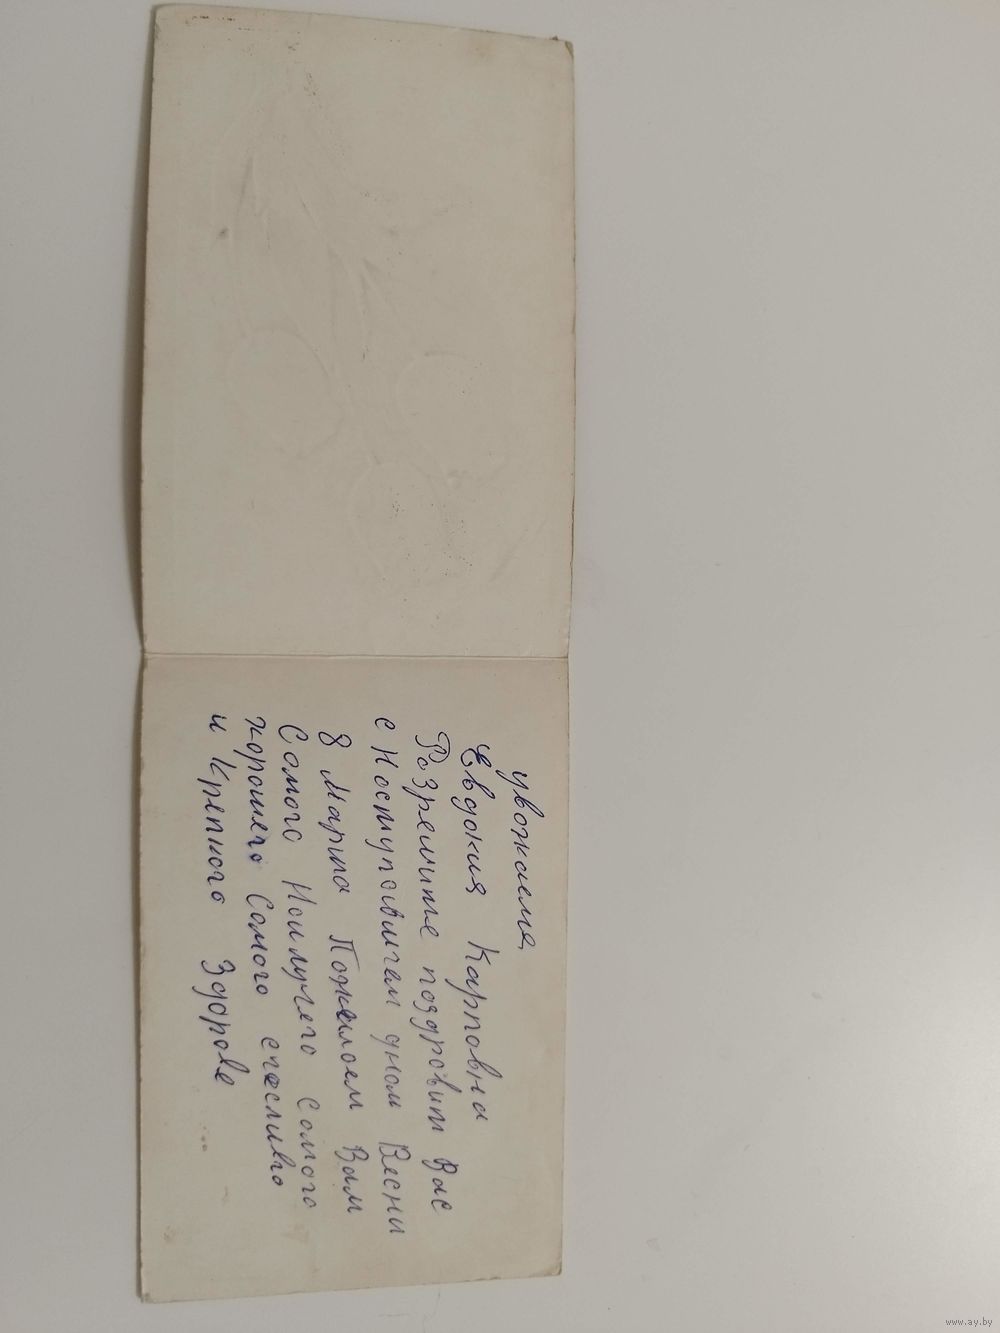 увожаемя
Евдокия Карповна
Розремите поздровит Вас
с Ноступовшгем дном Весни
8 Марта Пожелоем Вам
Самого Ноилучего Самого
хорошего Самого счесливго
и Крепкого Здорове
www.ay.by